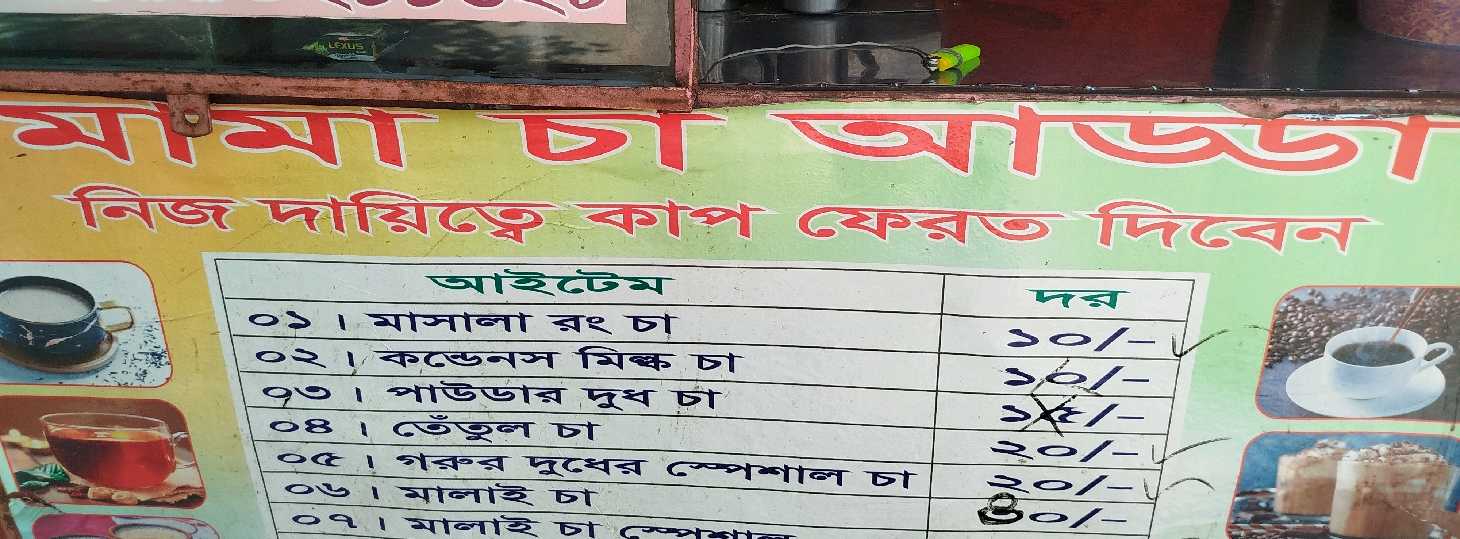 LEXUS
মামা চা আড্ডা
নিজ দায়িত্বে কাপ ফেরত দিবেন
আইটেম দর
০১ । মাসালা রং চা ১০/-
০২ । কন্ডেনস মিল্ক চা ১০/-
০৩ । পাউডার দুধ চা ১৫/-
০৪ । তেঁতুল চা ২০/-
০৫ । গরুর দুধের স্পেশাল চা ২০/-
০৬ । মালাই চা ৪০/-
০৭ । মালাই চা স্পেশাল